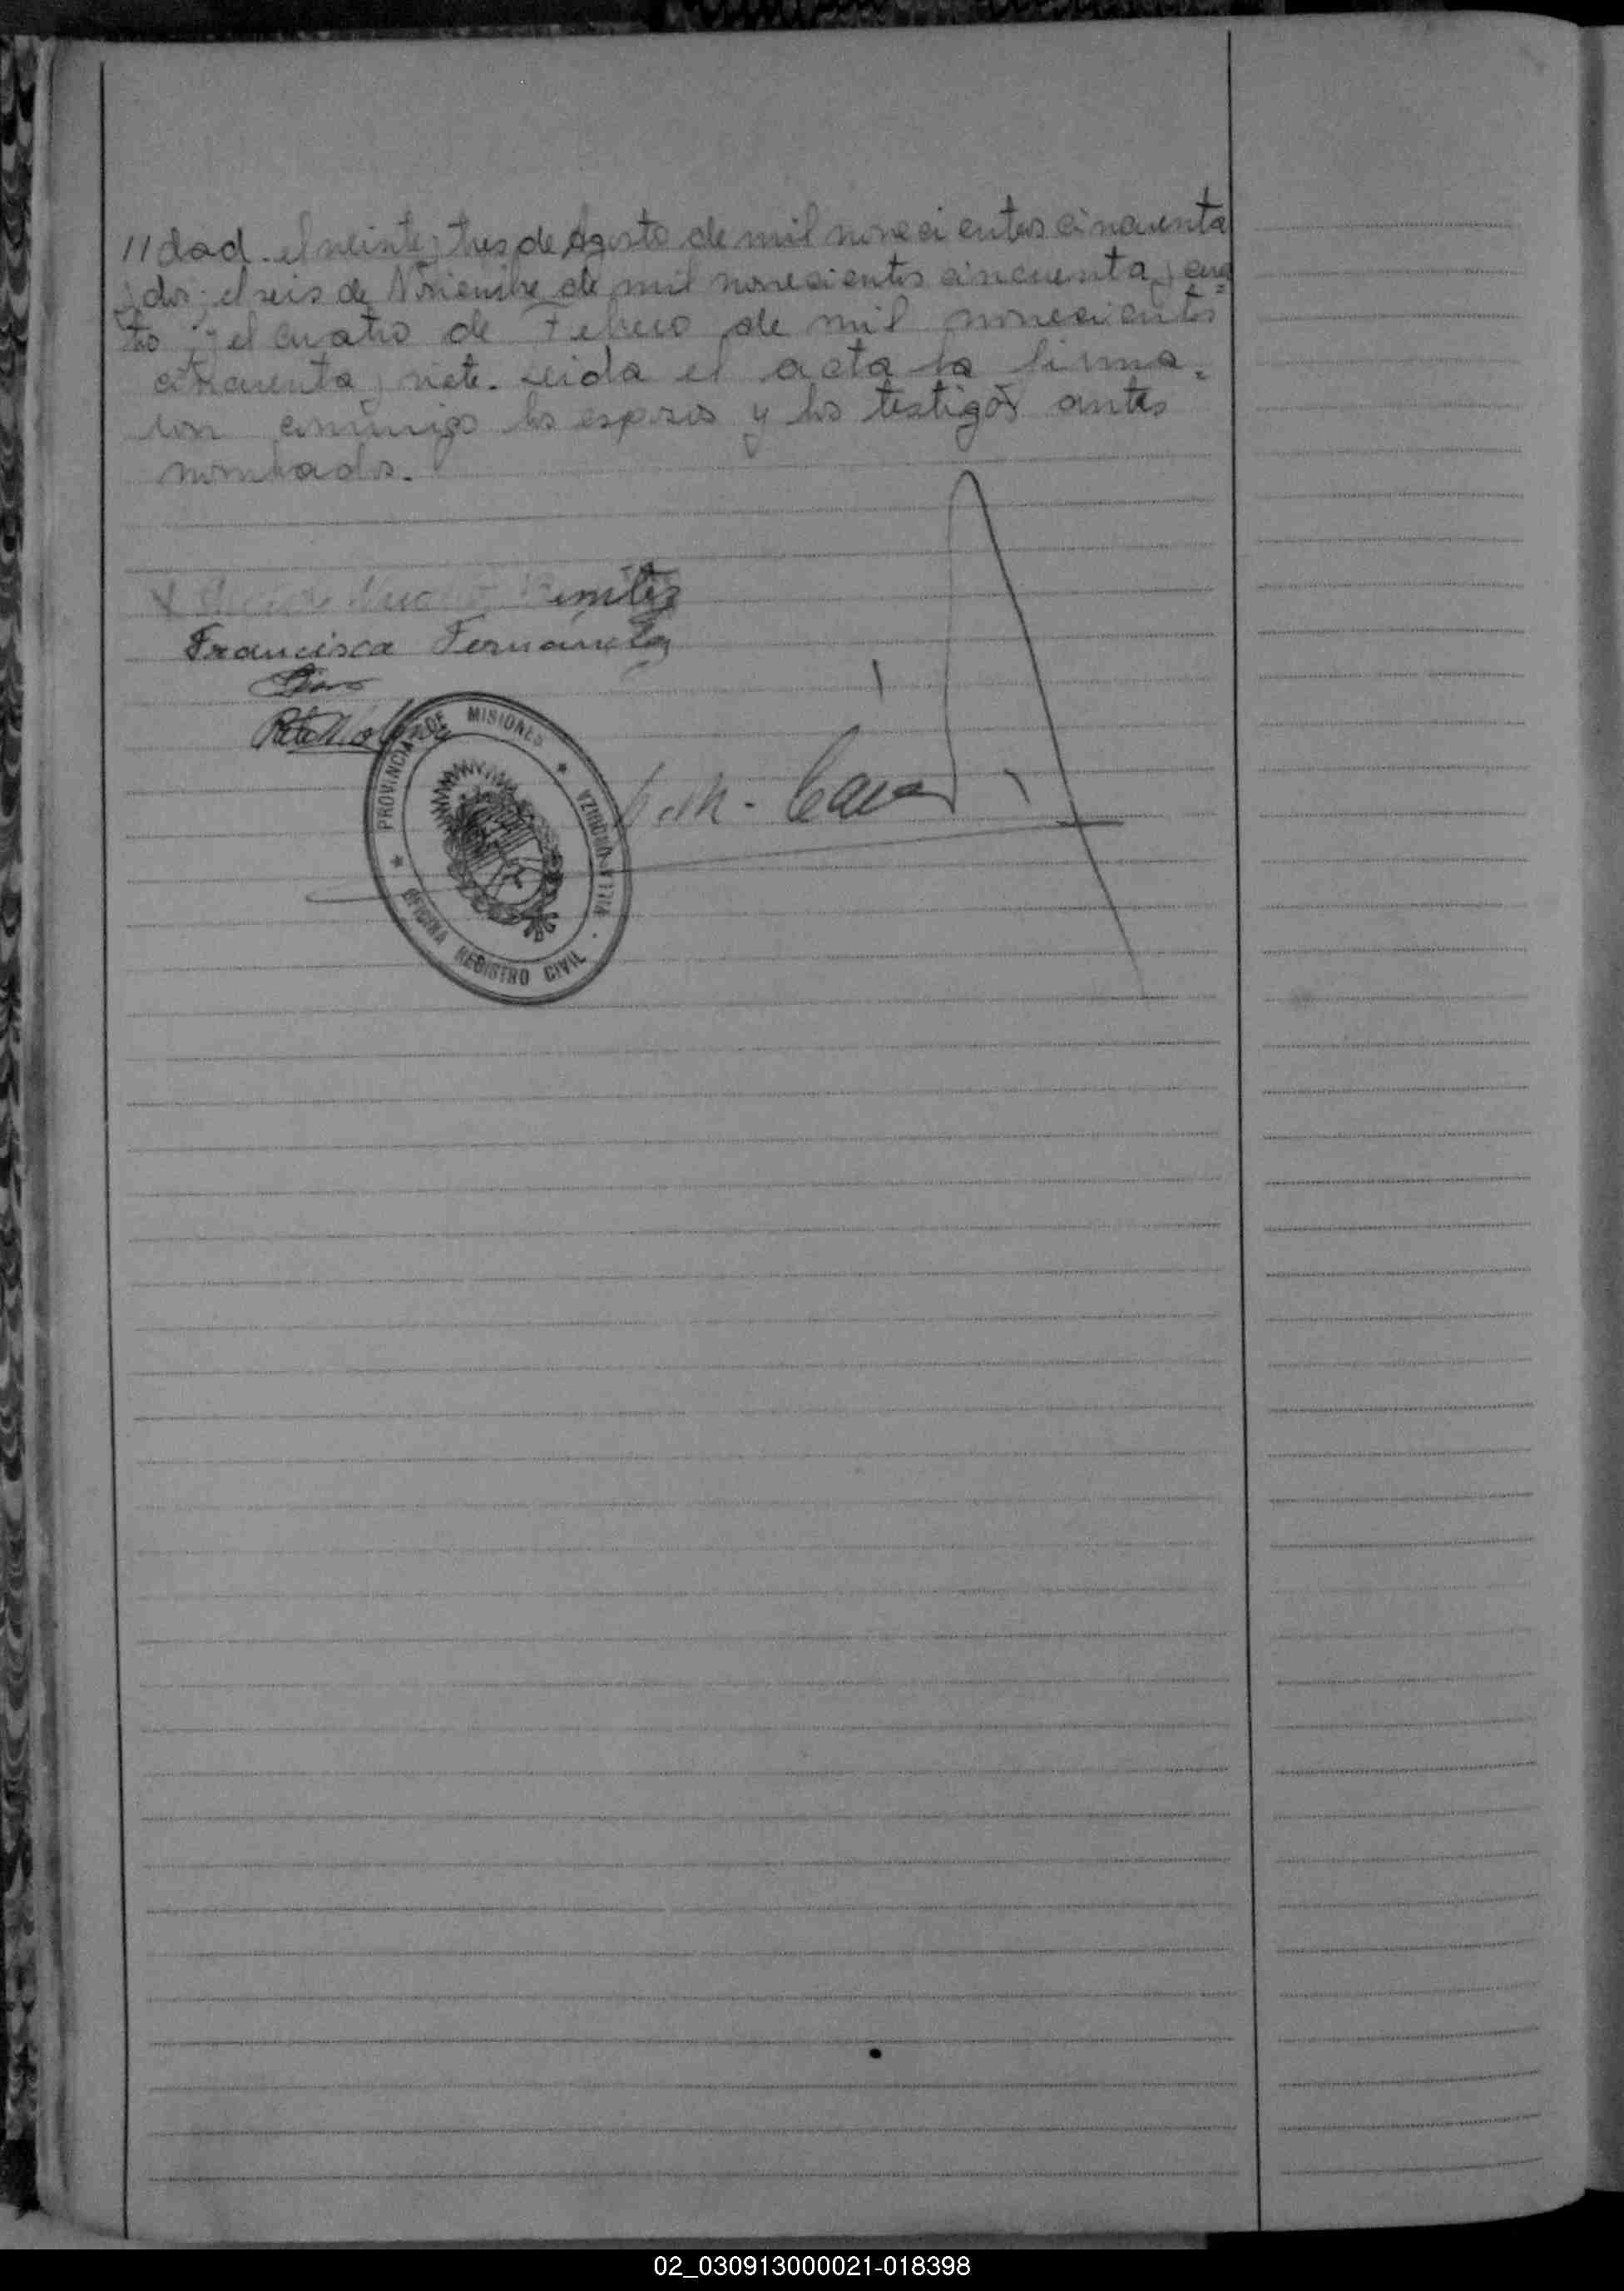 //dad. el veinte y tres de Agosto de mil novecientos cincuenta
y dos; el seis de Noviembre de mil novecientos cincuenta y cua=
tro y el cuatro de Febrero de mil novecientos
cincuenta y siete. Leida el acta la firma=
ron conmigo los esposos y los testigos antes
nombrados.
Benitez
Francisca Fernández
PROVINCIA DE MISIONES
OFICINA REGISTRO CIVIL
02_030913000021-018398